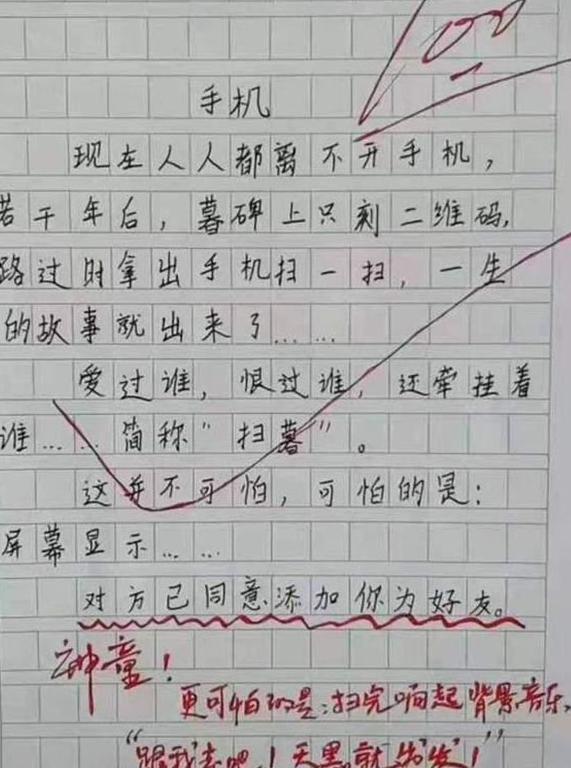 100
手机
现在人人都离不开手机，
若干年后，暮碑上只刻二维码，
路过时拿出手机扫一扫，一生
的故事就出来了……
爱过谁，恨过谁，还牵挂着
谁……简称"扫暮"。
这并不可怕，可怕的是：
屏幕显示……
对方已同意添加你为好友。
神童！
更可怕的是：扫完响起背景音乐，
"跟我走吧！天黑就出发！"